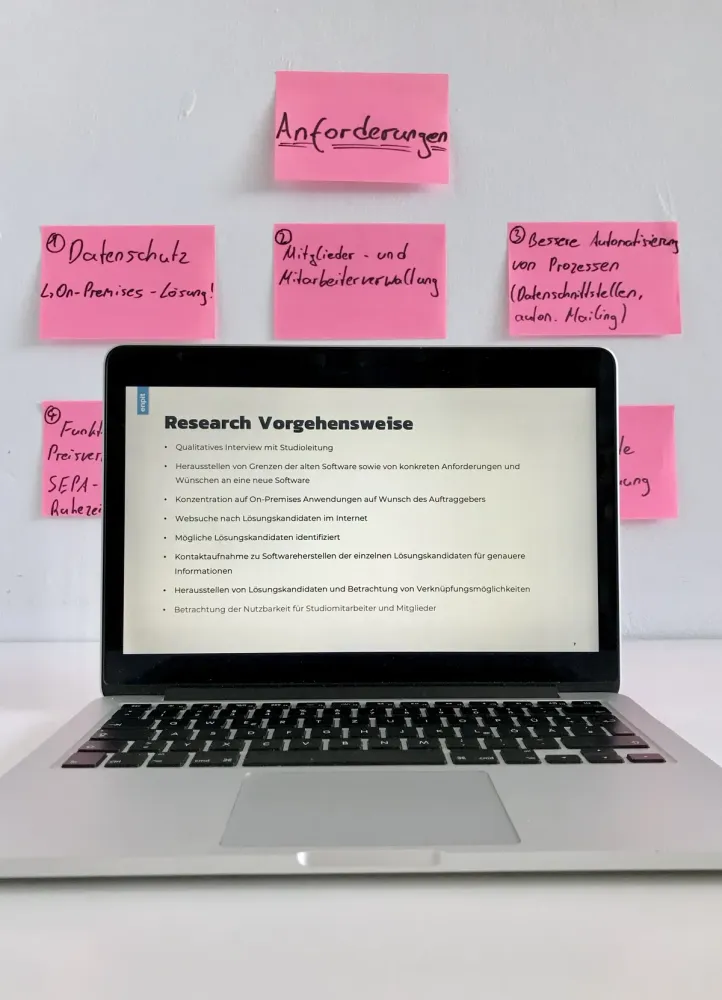 Anforderungen
① Datenschutz
↳ On-Premises-Lösung!
② Mitglieder- und
Mitarbeiterverwaltung
③ Bessere Automatisierung
von Prozessen
(Datenschnittstellen,
autom. Mailing)
④ Funkt
Preisver
SEPA-
Ruhezei
le
ung
enpit
Research Vorgehensweise
• Qualitatives Interview mit Studioleitung
• Herausstellen von Grenzen der alten Software sowie von konkreten Anforderungen und
Wünschen an eine neue Software
• Konzentration auf On-Premises Anwendungen auf Wunsch des Auftraggebers
• Websuche nach Lösungskandidaten im Internet
• Mögliche Lösungskandidaten identifiziert
• Kontaktaufnahme zu Softwareherstellen der einzelnen Lösungskandidaten für genauere
Informationen
• Herausstellen von Lösungskandidaten und Betrachtung von Verknüpfungsmöglichkeiten
• Betrachtung der Nutzbarkeit für Studiomitarbeiter und Mitglieder